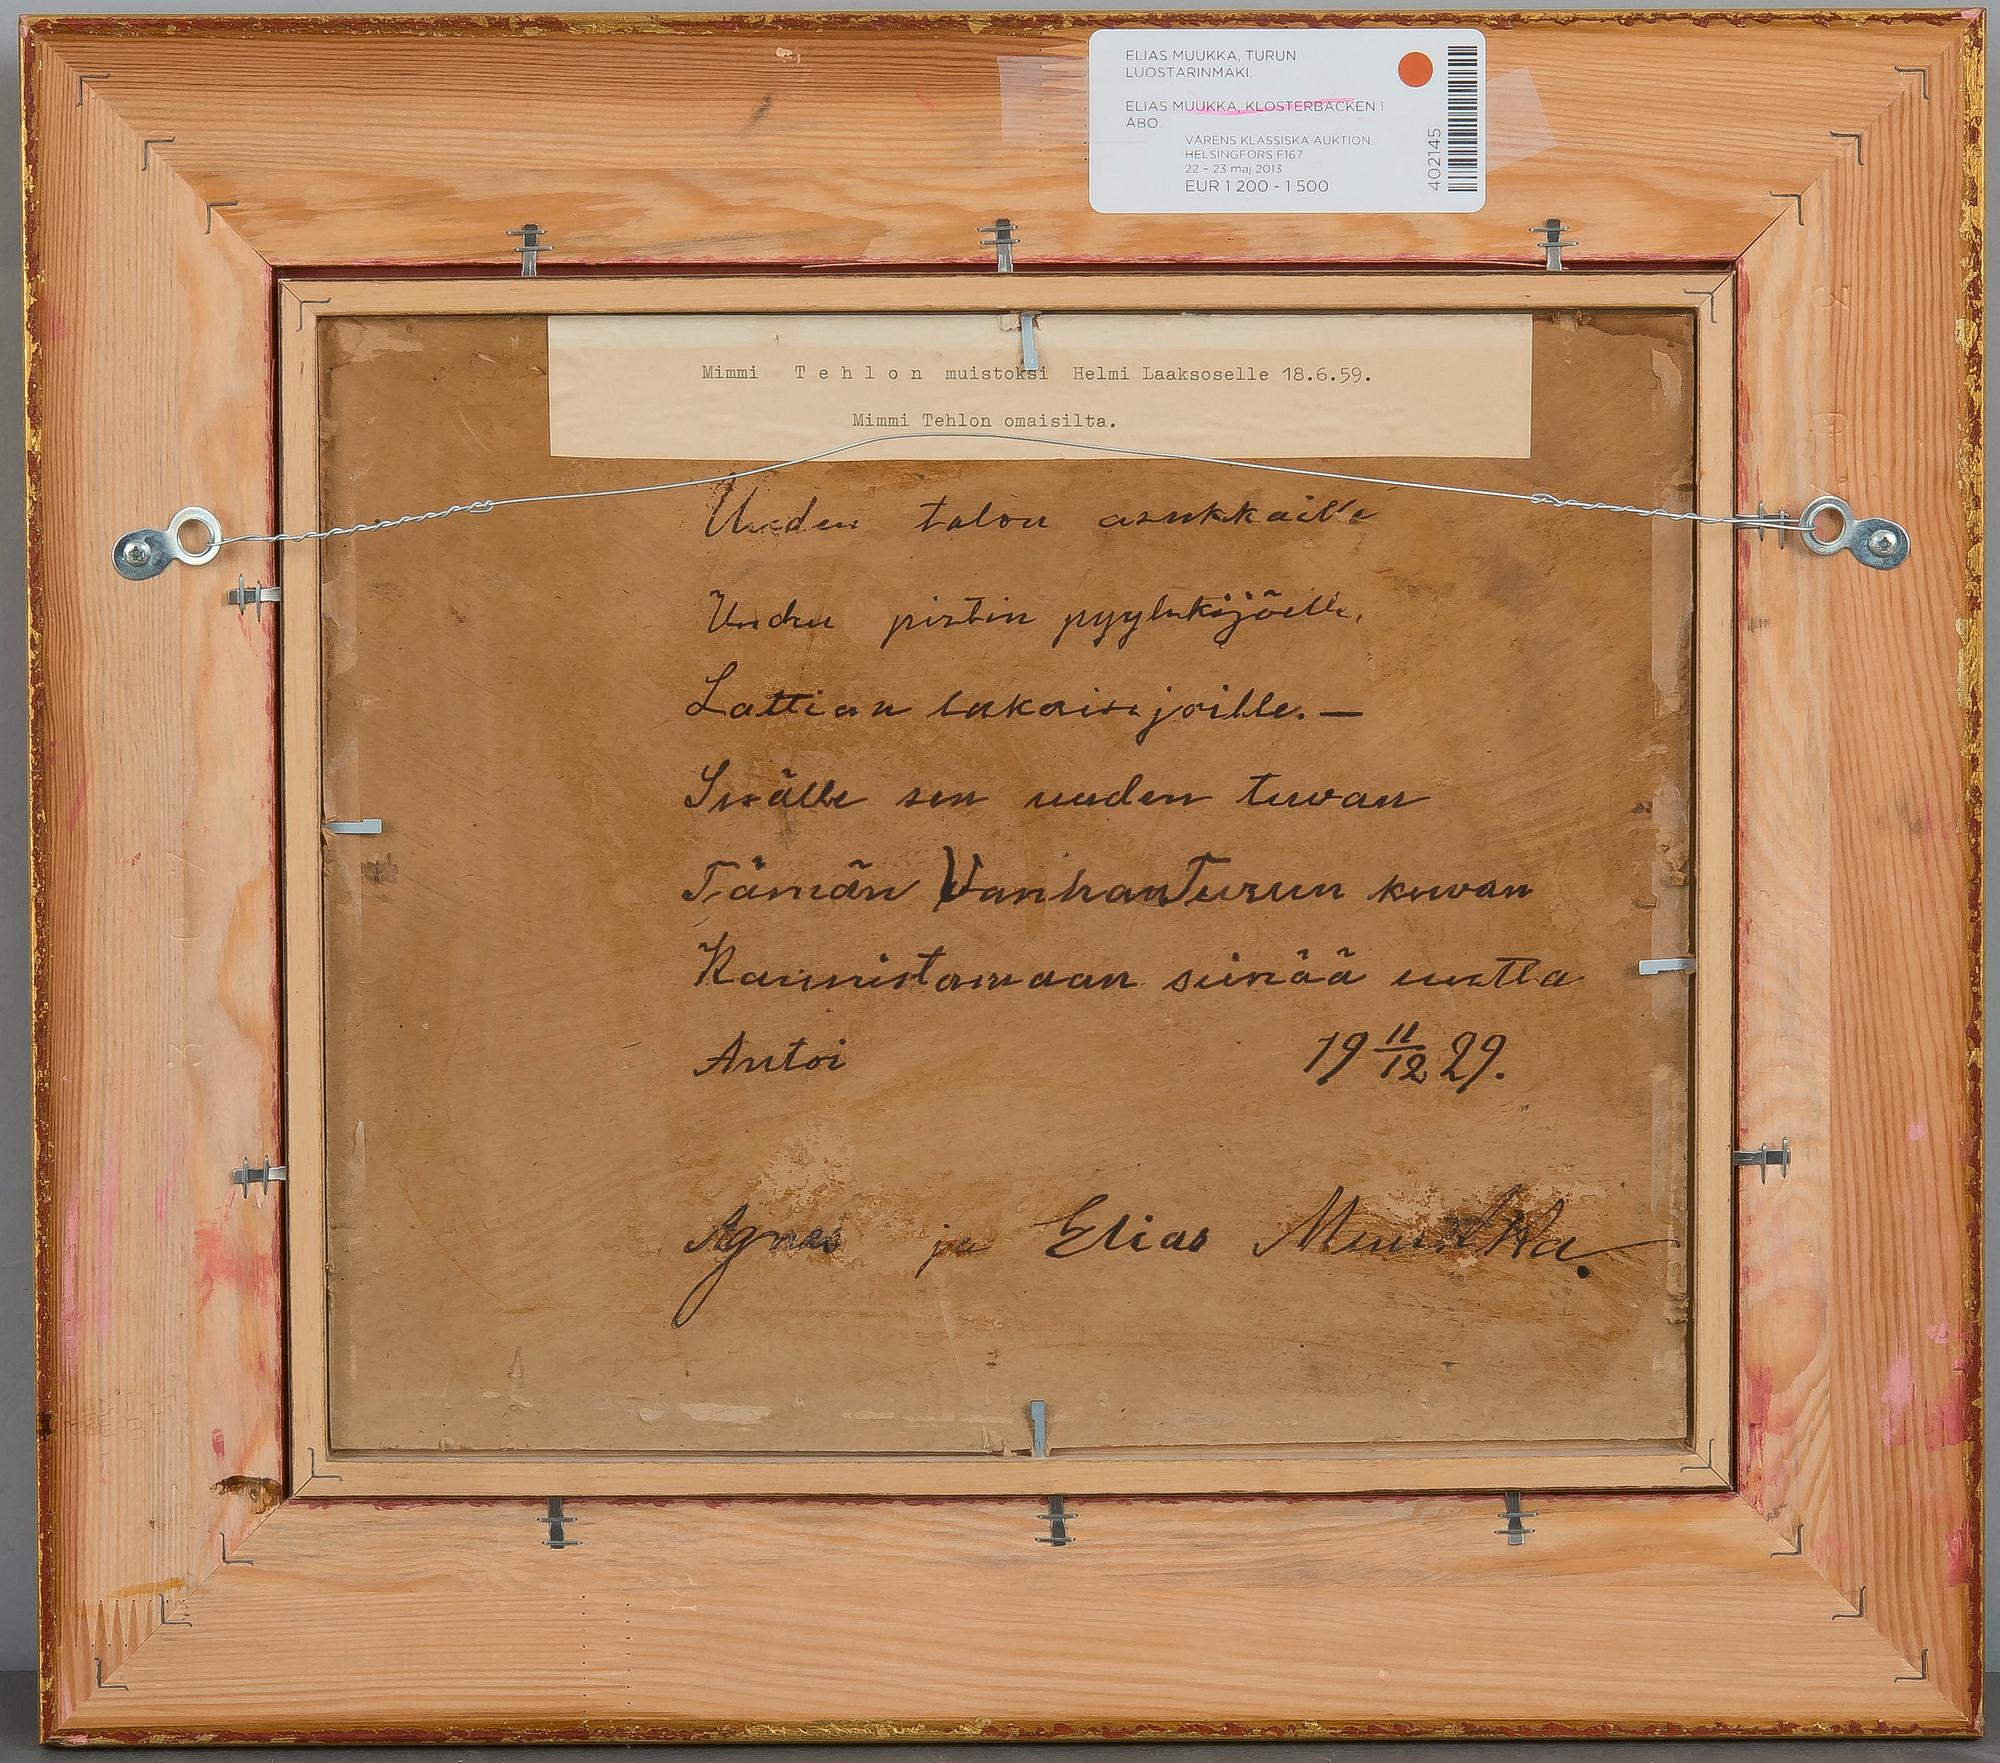 ELIAS MUUKKA, TURUN
LUOSTARINMÄKI.
ELIAS MUUKKA, KLOSTERBACKEN I
ÅBO.
VÅRENS KLASSISKA AUKTION,
HELSINGFORS F167
22 – 23 maj 2013
EUR 1 200 - 1 500
402145
Mimmi Tehlon muistoksi Helmi Laaksoselle 18.6.59.
Mimmi Tehlon omaisilta.
Uuden talon asukkaille
Uuden pirtin pyyhkijöille,
Lattian lakaisijoille. —
Sisälle sen uuden tuvan
Tämän Vanhan Turun kuvan
Kaunistamaan seinää uutta
Antoi 19 11/12 29.
Agnes ja Elias Muukka.